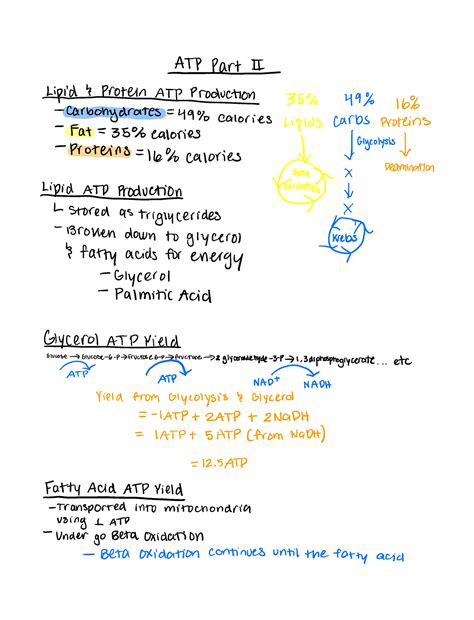 ATP Part II
Lipid & Protein ATP Production
- Carbohydrates = 49% calories
- Fat = 35% calories
- Proteins = 16% calories
35% 49% 16%
Lipids Carbs Proteins
Glycolysis
Beta Oxidation
X
Deamination
X
Krebs
Lipid ATP Production
↳ Stored as triglycerides
- Broken down to glycerol
& fatty acids for energy
- Glycerol
- Palmitic Acid
Glycerol ATP Yield
Glucose → Glucose-6-P → Fructose 6-P → Fructose → 2 glyceraldehyde-3-P → 1,3 diphosphoglycerate... etc
ATP ATP NAD+ NADH
Yield from Glycolysis & Glycerol
= -1ATP + 2ATP + 2NADH
= 1ATP + 5 ATP (from NADH)
= 12.5 ATP
Fatty Acid ATP Yield
- Transported into mitochondria
using 1 ATP
- Under go Beta Oxidation
- Beta oxidation continues until the fatty acid